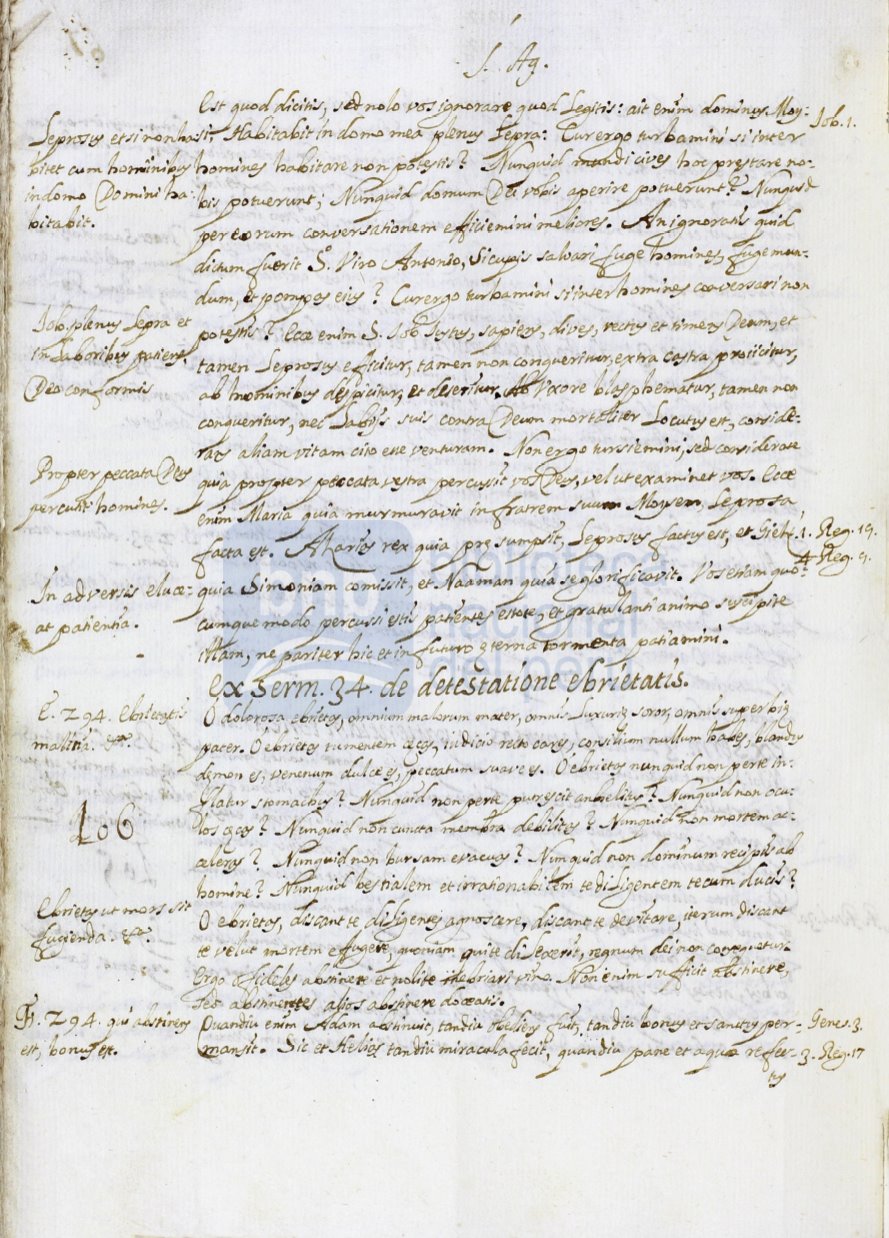 S. Ag.
Est quod dicitis, sed nolo vos ignorare quod legitis: ait enim dominus Moy-
Job. 1.
Leprosus et si non ha-
si, Habitabit in domo mea plenus lepra: Cur ergo turbamini si inter
bitet cum hominibus
homines habitare non potestis? Nunquid mundi cives hoc prestare vo-
in domo Domini ha-
bis potuerunt; Nunquid domum Dei vobis aperire potuerunt? Nunquid
bitabit.
per eorum conversationem efficiemini meliores. An ignoratis quid
dictum fuerit S.º Viro Antonio, Si cupis salvari fuge homines, fuge mun-
dum, et pompas eius? Cur ergo turbamini si inter homines conversari non
Job plenus lepra et
potestis? Ecce enim S. Job Iustus, sapiens, dives, rectus et timens Deum, et
in laboribus patiens,
tamen Leprosus efficitur, tamen non conqueritur, extra castra proiicitur,
Deo conformis
ab hominibus despicitur, et deseritur. Ab Uxore blasphematur, tamen non
conqueritur, nec labijs suis contra Deum mortaliter Locutus est, conside-
rans aliam vitam cito esse venturam. Non ergo turbemini, sed considerate
Propter peccata Deus
quia propter peccata vestra percussit vos Deus, vel ut examinet vos. Ecce
percutit homines.
enim Maria quia murmuravit in fratrem suum Moysem, Leprosa
facta est. Azarias rex quia presumpsit, Leprosus factus est, et Giezi,
1. Reg. 19.
4. Reg. 5.
In adversis eluce-
quia Simoniam comissit, et Naaman quia se glorificavit. Vos etiam quo-
at patientia.
cumque modo percussi estis patientes estote, et gratulanti animo suscipite
illam, ne pariter hic et in futuro eterna tormenta patiamini.
Ex Serm. 34. de detestatione ebrietatis.
E. 294. Ebrietatis
O dolorosa ebrietas, omnium malorum mater, omnis luxurie soror, omnis superbie
malitia.
pater. O ebrietas tumentem cecas, iudicio recto cares, consilium nullum habes, blandus
demon es, venenum dulce es, peccatum suave es. O ebrietas nunquid non per te in-
flatur stomachus? Nunquid non per te putrescit anhelitus? Nunquid non ocu-
106
los cecas? Nunquid non cuncta membra debilitas? Nunquid non mortem ac-
celeras? Nunquid non bursam evacuas? Nunquid non dominum recipis ab
homine? Nunquid bestialem et irrationabilem te diligentem tecum ducis?
Ebrietas ut mors sit
O ebrietas, discant te diligentes agnoscere, discant te devitare, iterum discant
fugienda.
te velut mortem effugere, quoniam qui te dilexerit, regnum dei non consequatur.
Ergo o fideles abstinete et nolite inebriari vino. Non enim sufficit abstinere,
sed abstinentes alios abstinere doceatis.
F. 294. qui abstinens
Quandiu enim Adam abstinuit, tandiu fuit, tandiu bonus et sanctus per-
Genes. 3.
est, bonus est.
mansit. Sic et Helias tandiu miracula fecit, quandiu pane et aqua refec-
3. Reg. 17
tus
bnp
biblioteca
nacional
del perú